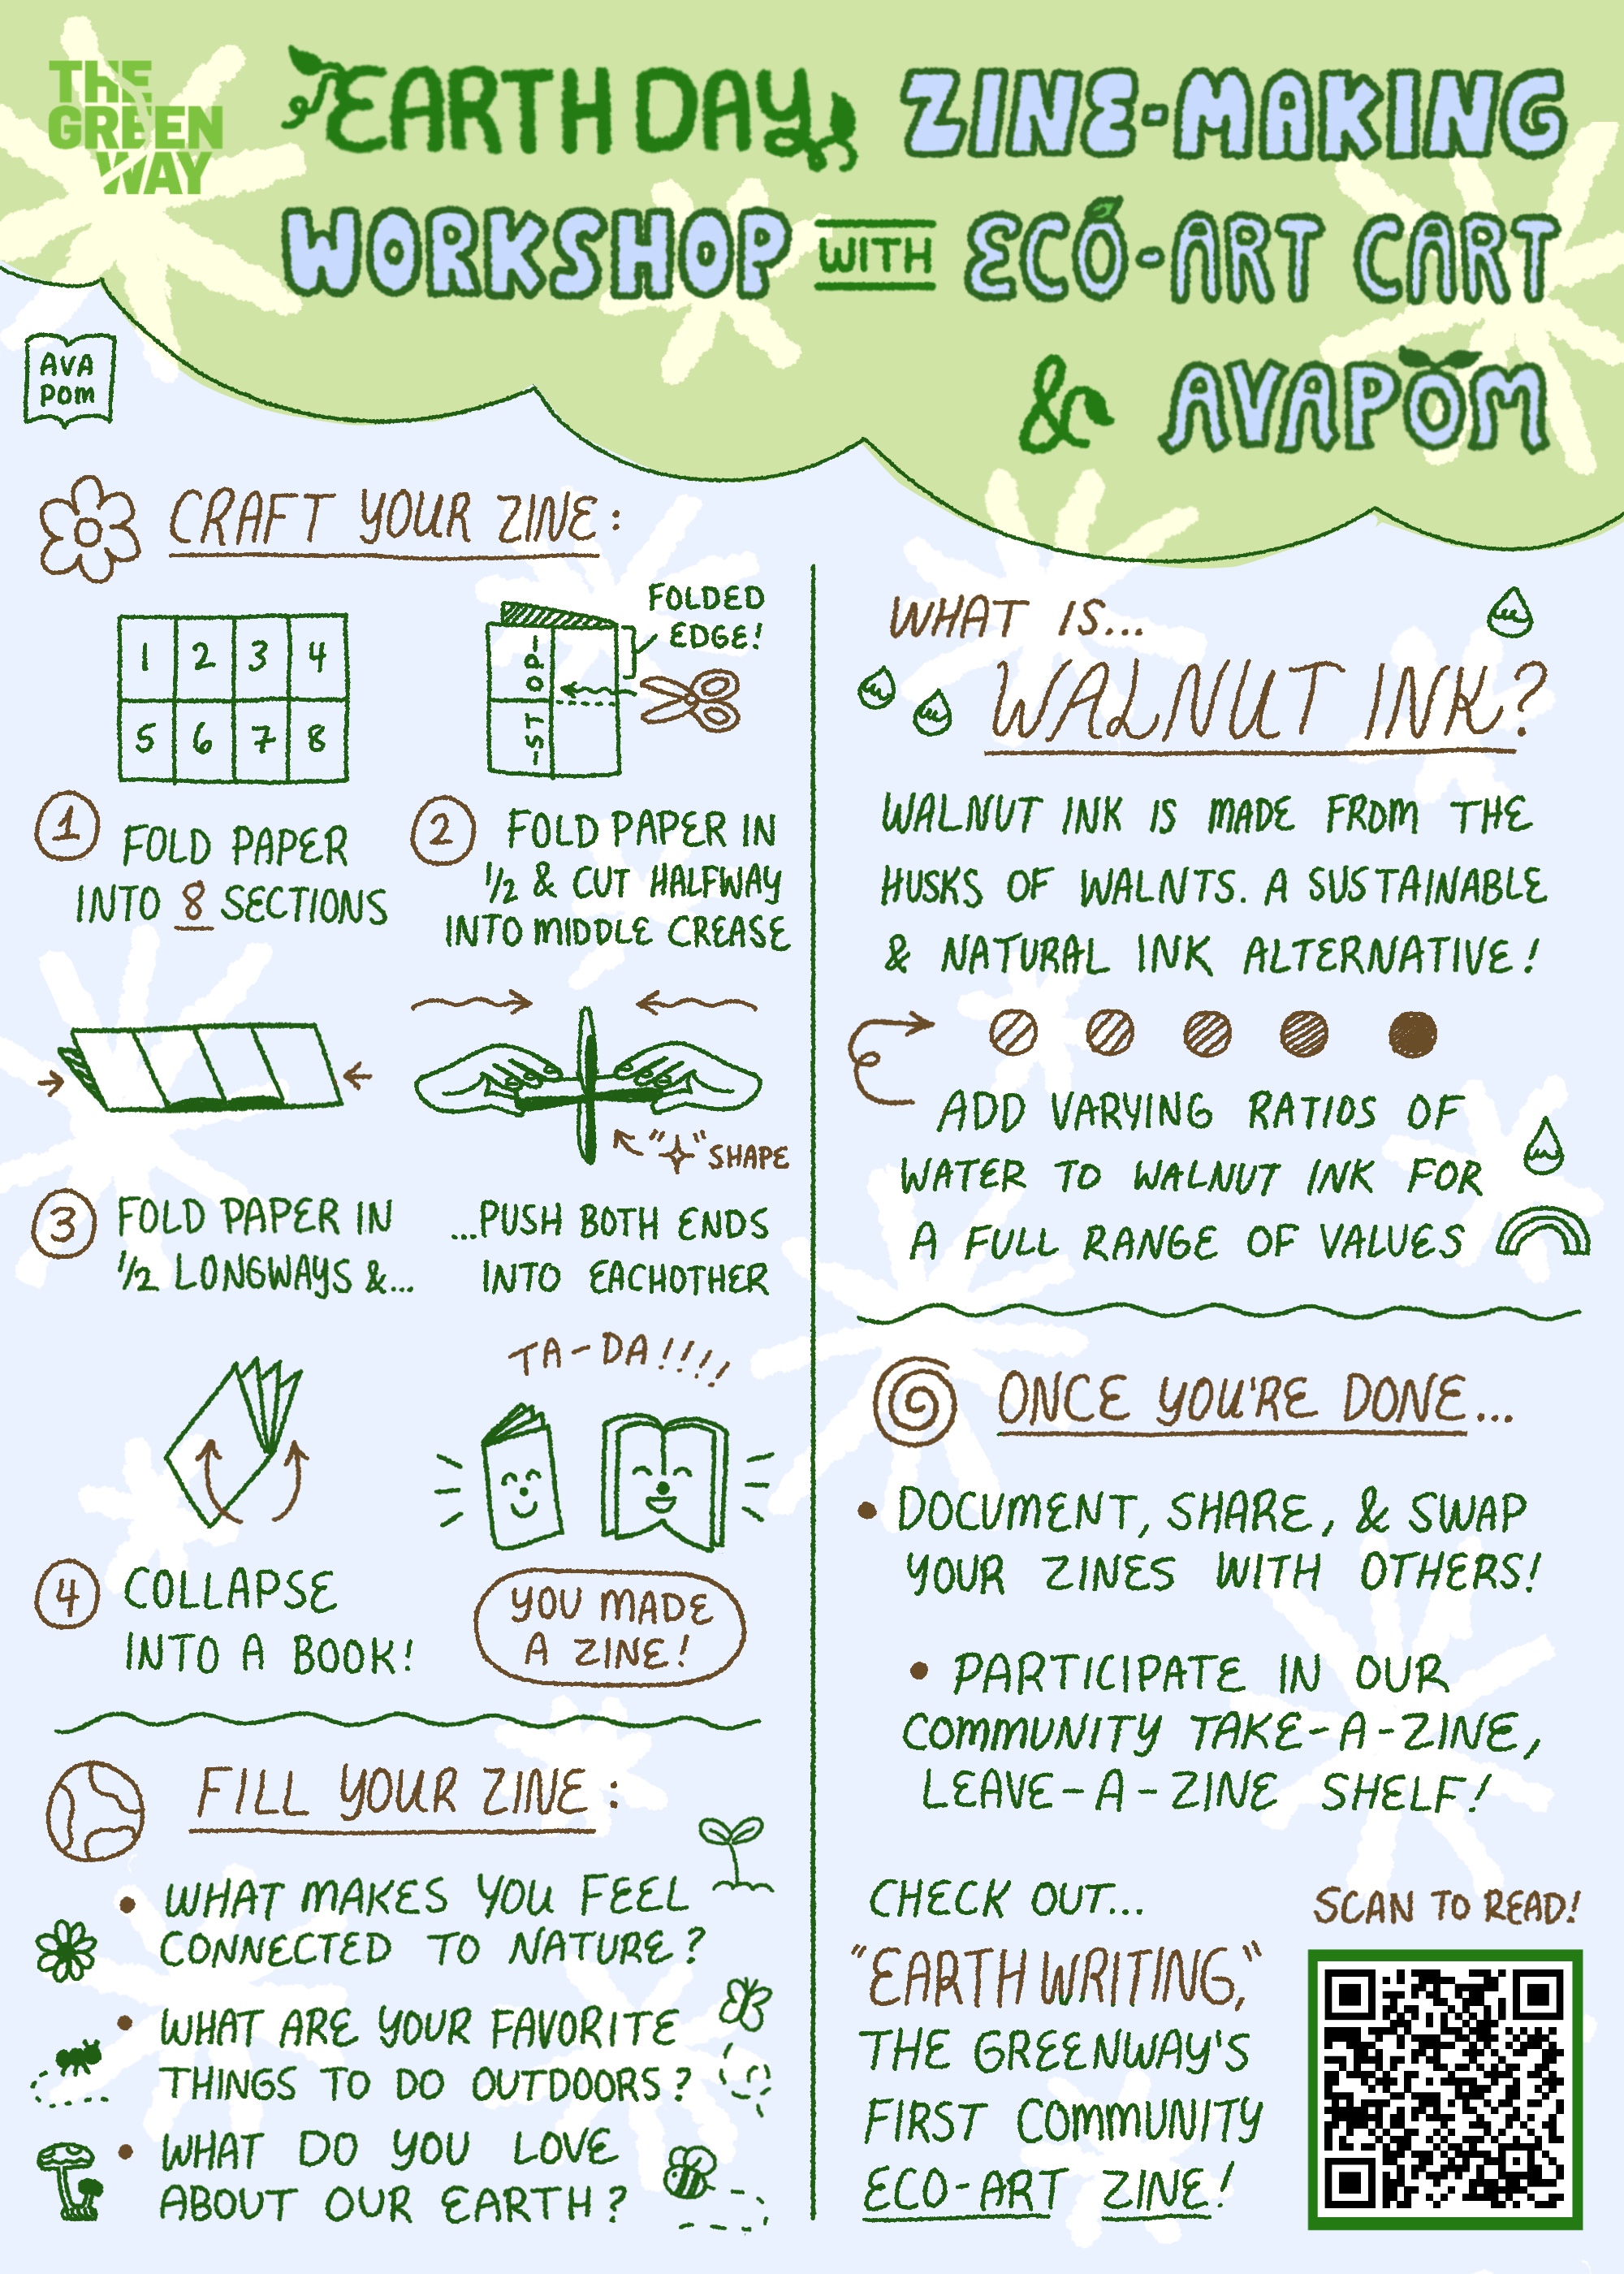 THE
GREEN
WAY
EARTH DAY ZINE-MAKING
WORKSHOP WITH ECO-ART CART
& AVAPOM
AVA
POM
CRAFT YOUR ZINE:
1 2 3 4
5 6 7 8
FOLDED
EDGE!
-STOP-
1 FOLD PAPER
INTO 8 SECTIONS
2 FOLD PAPER IN
1/2 & CUT HALFWAY
INTO MIDDLE CREASE
"✧" SHAPE
3 FOLD PAPER IN
1/2 LONGWAYS &...
...PUSH BOTH ENDS
INTO EACHOTHER
TA-DA!!!!
4 COLLAPSE
INTO A BOOK!
YOU MADE
A ZINE!
FILL YOUR ZINE:
• WHAT MAKES YOU FEEL
CONNECTED TO NATURE?
• WHAT ARE YOUR FAVORITE
THINGS TO DO OUTDOORS?
• WHAT DO YOU LOVE
ABOUT OUR EARTH?
WHAT IS...
WALNUT INK?
WALNUT INK IS MADE FROM THE
HUSKS OF WALNTS. A SUSTAINABLE
& NATURAL INK ALTERNATIVE!
ADD VARYING RATIOS OF
WATER TO WALNUT INK FOR
A FULL RANGE OF VALUES
ONCE YOU'RE DONE...
• DOCUMENT, SHARE, & SWAP
YOUR ZINES WITH OTHERS!
• PARTICIPATE IN OUR
COMMUNITY TAKE-A-ZINE,
LEAVE-A-ZINE SHELF!
CHECK OUT...
"EARTH WRITING,"
THE GREENWAY'S
FIRST COMMUNITY
ECO-ART ZINE!
SCAN TO READ!